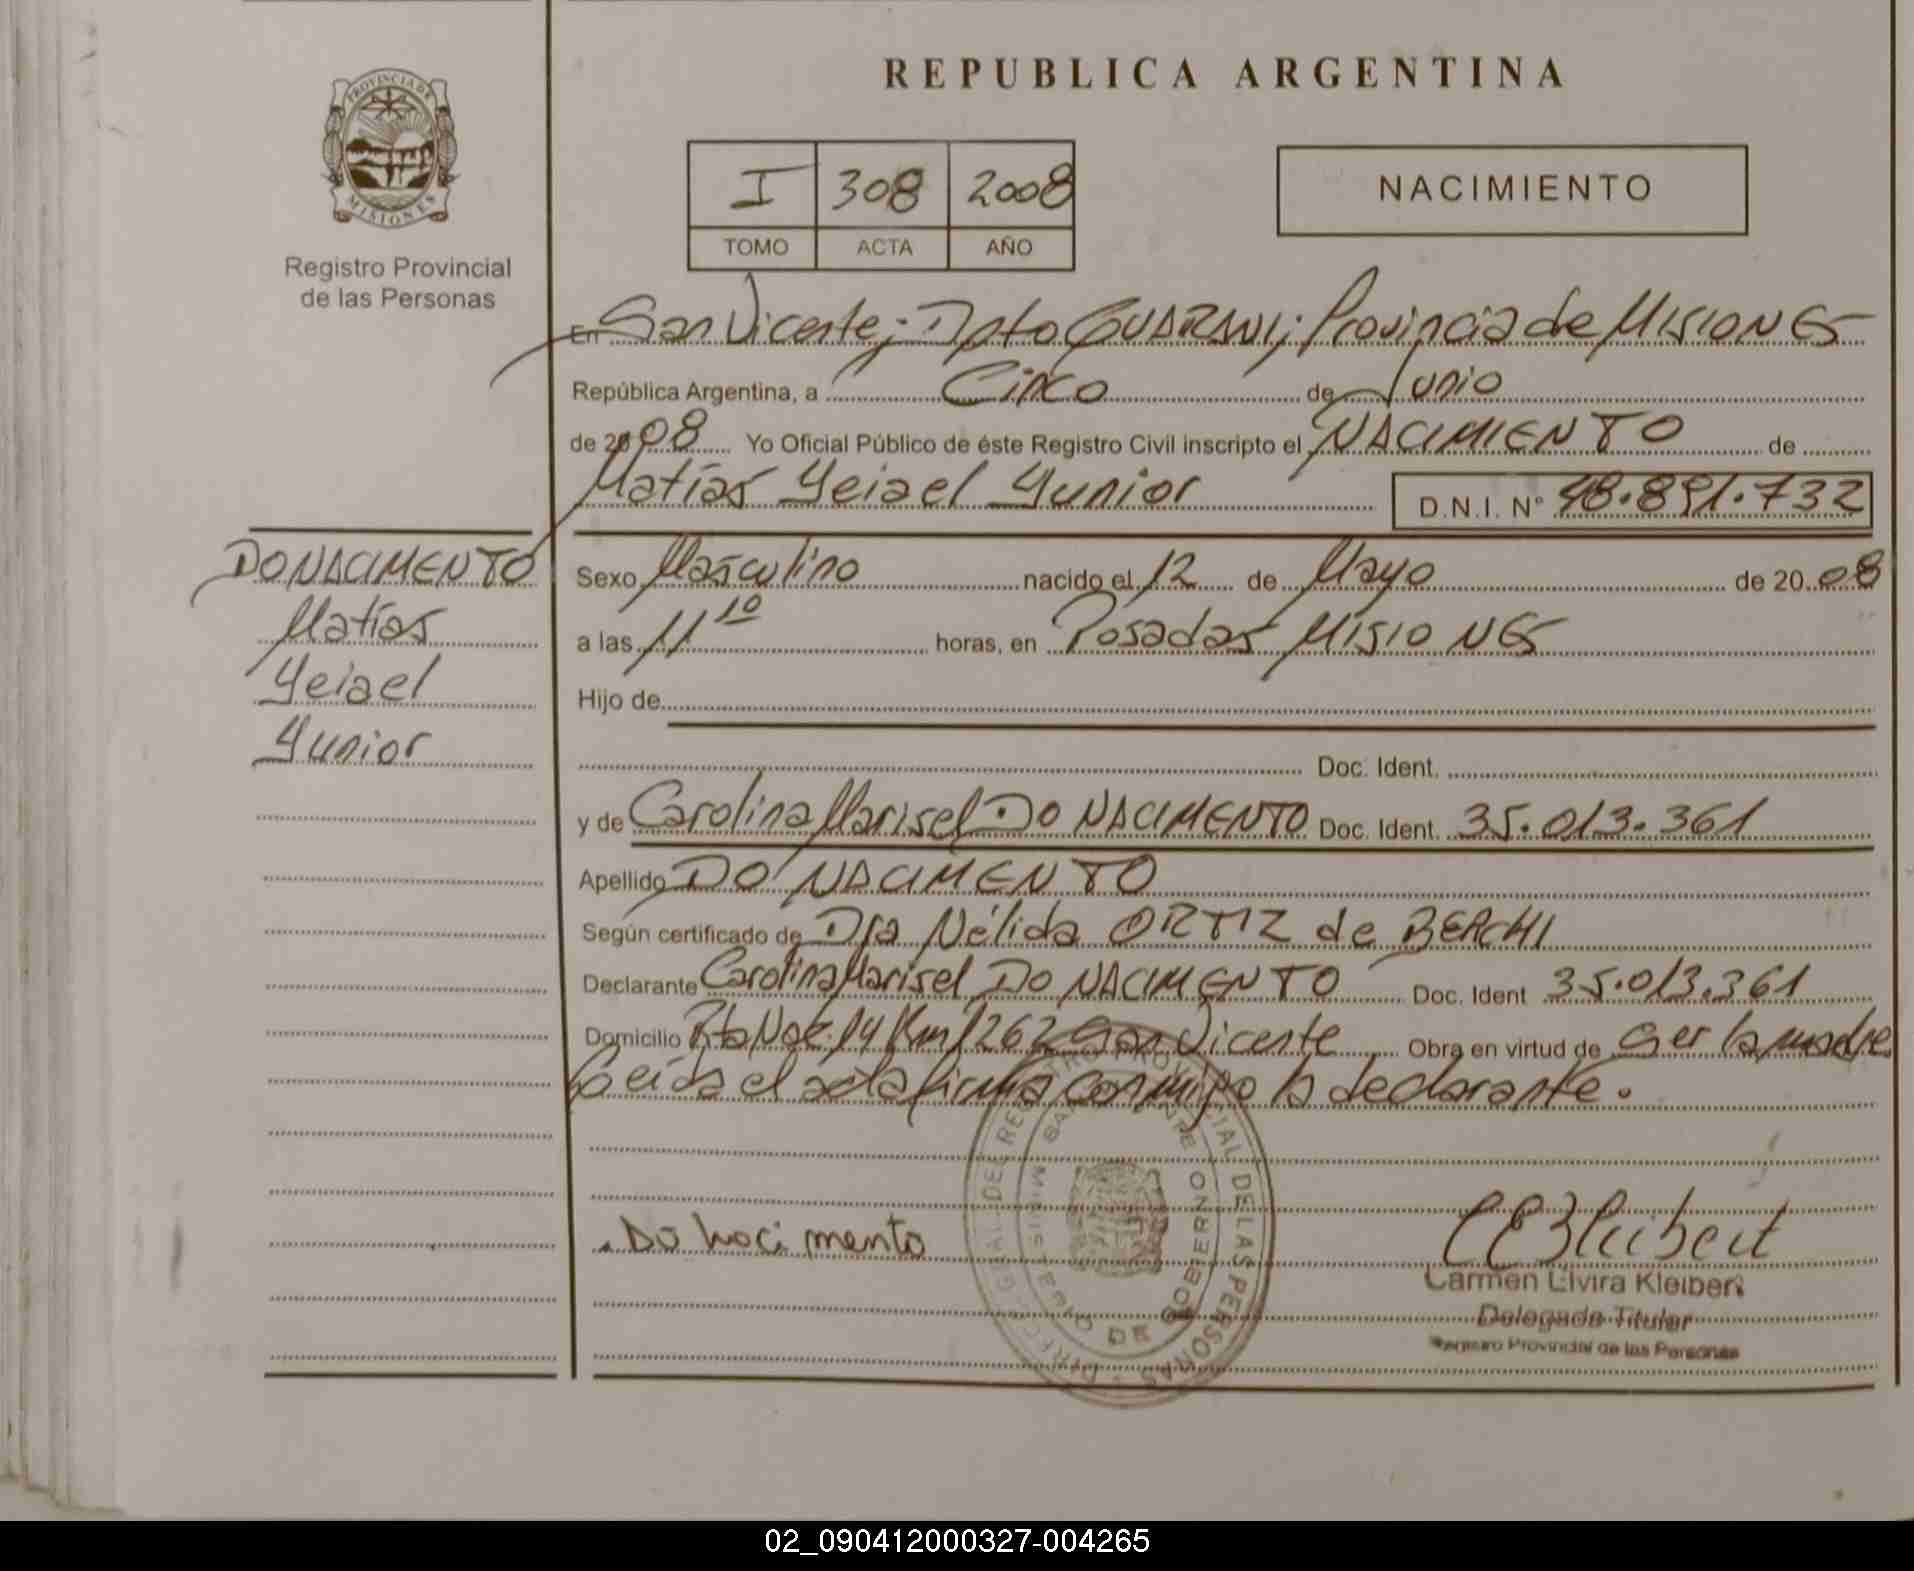 PROVINCIA DE
MISIONES
Registro Provincial
de las Personas
REPUBLICA ARGENTINA
I 308 2008
TOMO ACTA AÑO
NACIMIENTO
En San Vicente; Dpto GUARANI; Provincia de MISIONES
República Argentina, a Cinco de Junio
de 2008 Yo Oficial Público de éste Registro Civil inscripto el NACIMIENTO de
Matías Yeiael Yunior D.N.I. N° 48.891.732
DO NACIMENTO
Matías
Yeiael
Yunior
Sexo Masculino nacido el 12 de Mayo de 2008
a las 11 10 horas, en Posadas MISIONES
Hijo de
Doc. Ident.
y de Carolina Marisel DO NACIMENTO Doc. Ident. 35.013.361
Apellido DO NACIMENTO
Según certificado de Dra Nélida ORTIZ de BERCHI
Declarante Carolina Marisel DO NACIMENTO Doc. Ident 35.013.361
Domicilio Rta Nac. 14 Km 1262 San Vicente Obra en virtud de ser la madre
Leída el acta firma conmigo la declarante.
Do naci mento
Carmen Elvira Kleibert
Delegada Titular
Registro Provincial de las Personas
02_090412000327-004265